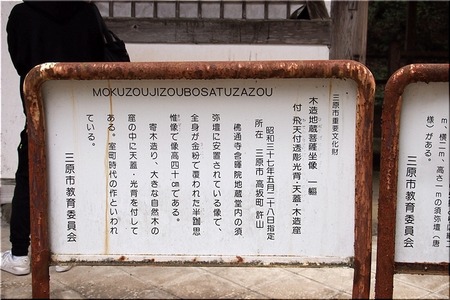 MOKUZOUJIZOUBOSATUZAZOU
三原市重要文化財
木造地蔵菩薩坐像 一軀
付 飛天付透彫光背・天蓋・木造窟
昭和三十七年五月二十八日指定
所在 三原市 高坂町 許山
佛通寺含暉院地蔵堂内の須
弥壇に安置されている像で、
全身が金粉で覆われた半跏思
惟像で像高四十㎝である。
寄木造り、大きな自然木の
窟の中に天蓋・光背を付して
ある。室町時代の作といわれ
ている。
三原市教育委員会
m、横二m、高さ一mの須弥壇(唐
様)がある。
三原市教育委員会